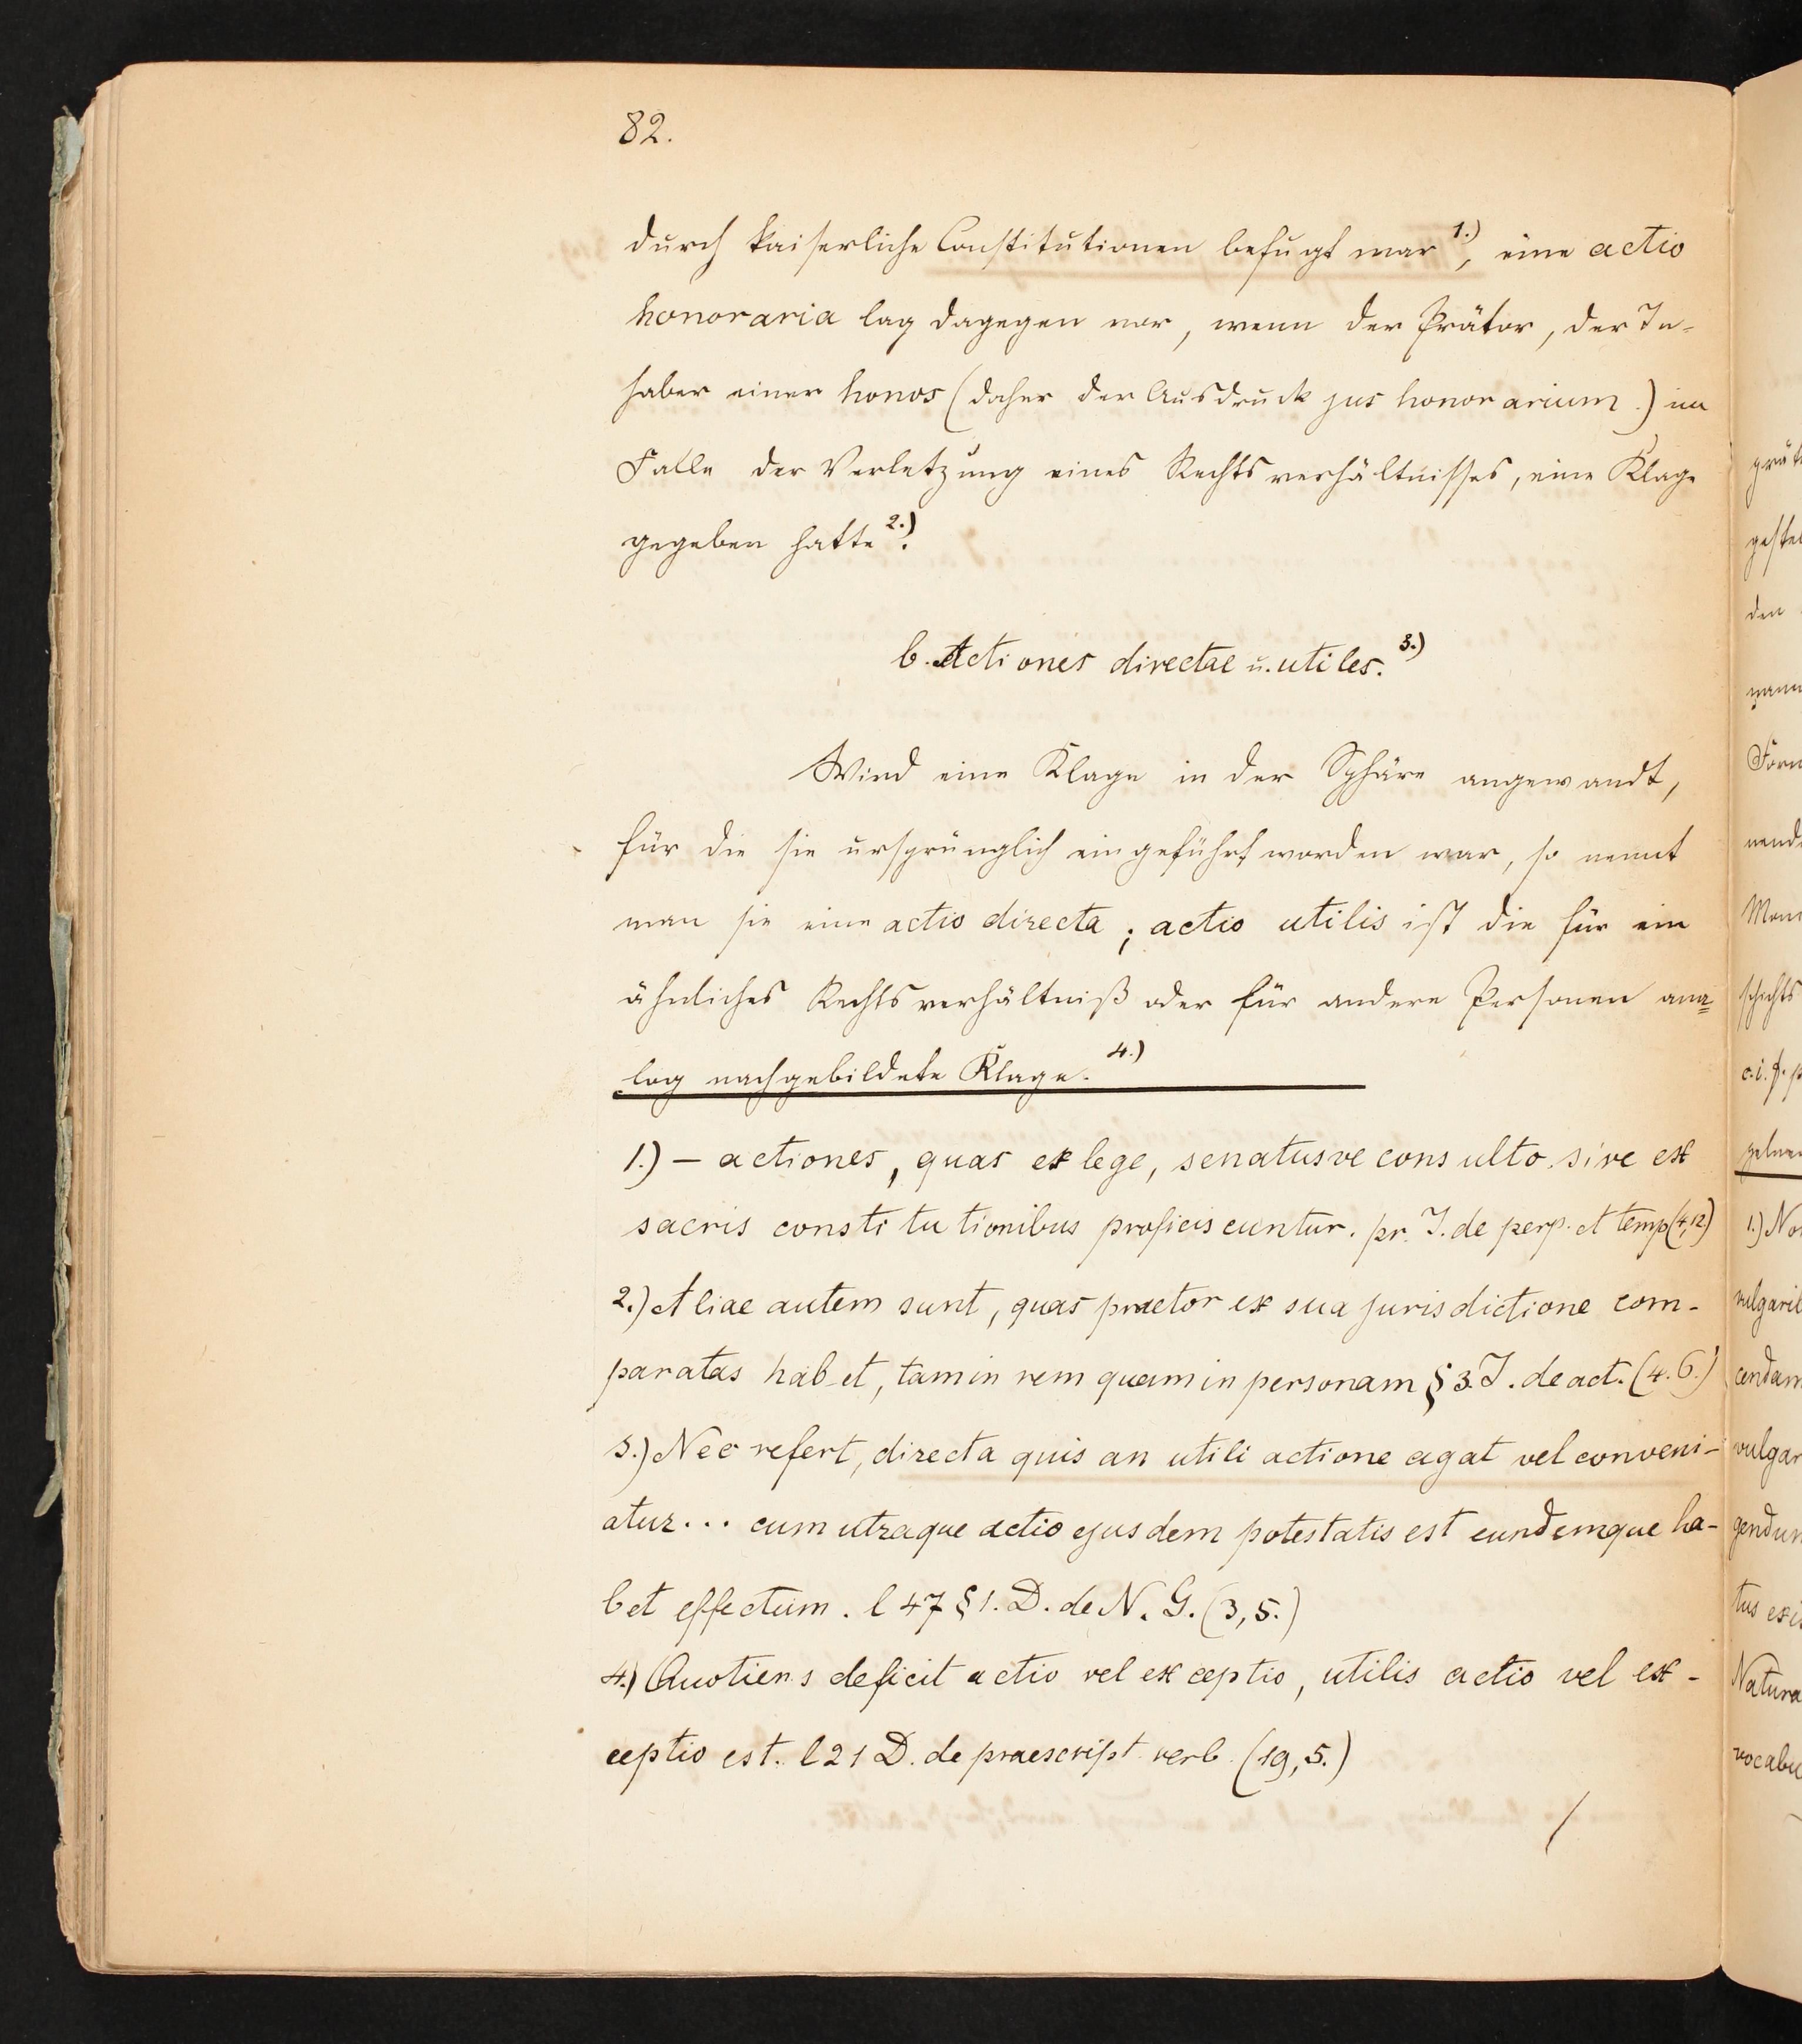 82.
durch kaiserliche Constitutionen befugt war 1.), eine actio
honoraria lag dagegen vor, wenn der Prätor, der In-
haber einer honos (daher der Ausdruck jus honorarium.) im
Falle der Verletzung eines Rechtsverhältnisses, eine Klage
gegeben hatte 2.).
b. Actiones directae u. utiles. 3.)
Wird eine Klage in der Sphäre angewandt,
für die sie ursprünglich eingeführt worden war, so nennt
man sie eine actio directa; actio utilis ist die für ein
ähnliches Rechtsverhältniß oder für andere Personen ana=
log nachgebildete Klage. 4.)
1.) – actiones, quas ex lege, senatusve consulto sive ex
sacris constitutionibus proficiscuntur. pr. I. de perp. et temp (4,12)
2.) Aliae autem sunt, quas praetor ex sua jurisdictione com-
paratas habet, tam in rem quam in personam § 3. I. de act. (4.6.)
3.) Nec refert, directa quis an utili actione agat vel conveni-
atur... cum utraque actio ejusdem potestatis est eundemque ha-
bet effectum. l 47 § 1. D. de N. G. (3,5.)
4.) Quotiens deficit actio vel exceptio, utilis actio vel ex-
ceptio est. l 21 D. de praescript. verb. (19,5.)